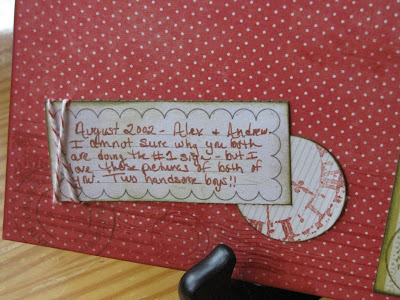 August 2002 - Alex & Andrew.
I am not sure why you both
are doing the #1 sign - but I
love those pictures of both of
you. Two handsome boys!!